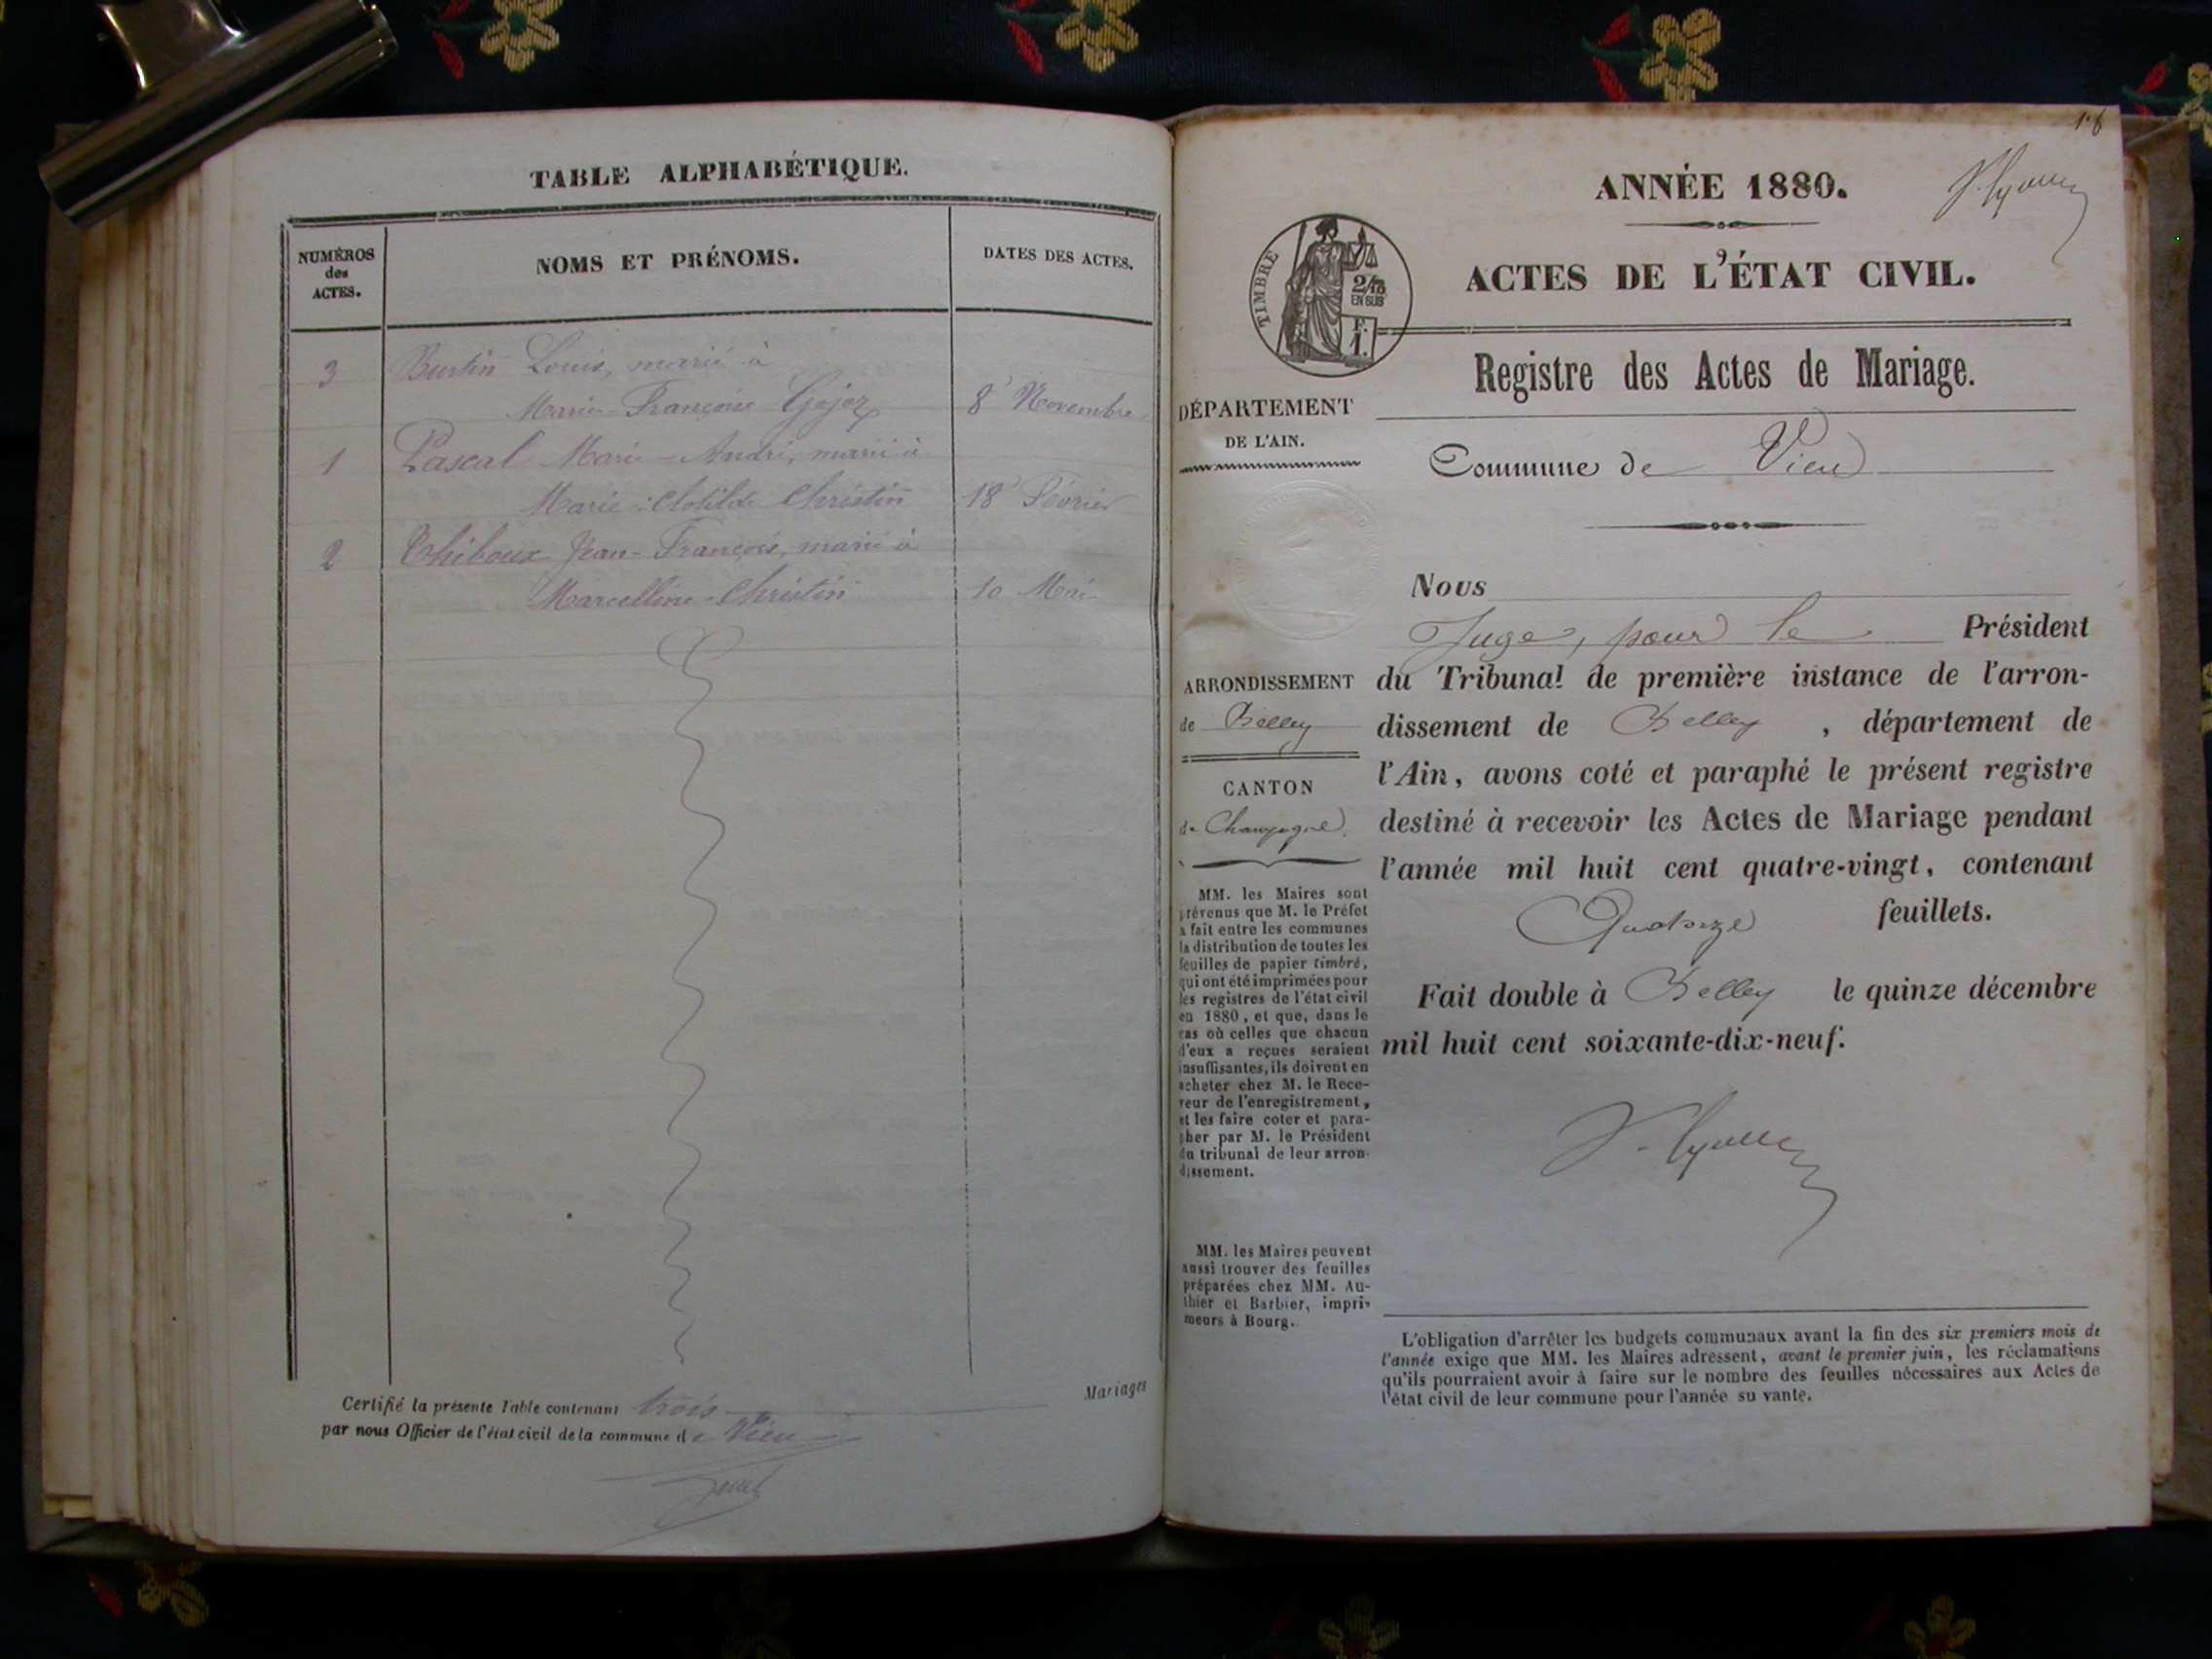 TABLE ALPHABÉTIQUE.
NUMÉROS
des
ACTES.
NOMS ET PRÉNOMS.
DATES DES ACTES.
3 Burtin Louis, marié à
Marie-Françoise Gojoz 8 Novembre
1 Pascal Marie-André, marié à
Marie-Clotilde Christin 18 Février
2 Thiboux Jean-François, marié à
Marcelline Christin 10 Mai
Certifié la présente Table contenant trois Mariages
par nous Officier de l'état civil de la commune de Vieu
ANNÉE 1880.
TIMBRE
2/10
EN SUS
F.
1.
ACTES DE L'ÉTAT CIVIL.
Registre des Actes de Mariage.
DÉPARTEMENT
DE L'AIN.
Commune de Vieu
Nous
Juge, pour le Président
du Tribunal de première instance de l'arron-
dissement de Belley, département de
l'Ain, avons coté et paraphé le présent registre
destiné à recevoir les Actes de Mariage pendant
l'année mil huit cent quatre-vingt, contenant
Quatorze feuillets.
Fait double à Belley le quinze décembre
mil huit cent soixante-dix-neuf.
ARRONDISSEMENT
de Belley
CANTON
de Champagne
MM. les Maires sont
prévenus que M. le Préfet
a fait entre les communes
la distribution de toutes les
feuilles de papier timbré,
qui ont été imprimées pour
les registres de l'état civil
en 1880, et que, dans le
cas où celles que chacun
d'eux a reçues seraient
insuffisantes, ils doivent en
acheter chez M. le Rece-
veur de l'enregistrement,
et les faire coter et para-
pher par M. le Président
du tribunal de leur arron-
dissement.
MM. les Maires peuvent
aussi trouver des feuilles
préparées chez MM. Au-
thier et Barbier, impri-
meurs à Bourg.
L'obligation d'arrêter les budgets communaux avant la fin des six premiers mois de
l'année exige que MM. les Maires adressent, avant le premier juin, les réclamations
qu'ils pourraient avoir à faire sur le nombre des feuilles nécessaires aux Actes de
l'état civil de leur commune pour l'année su vante.